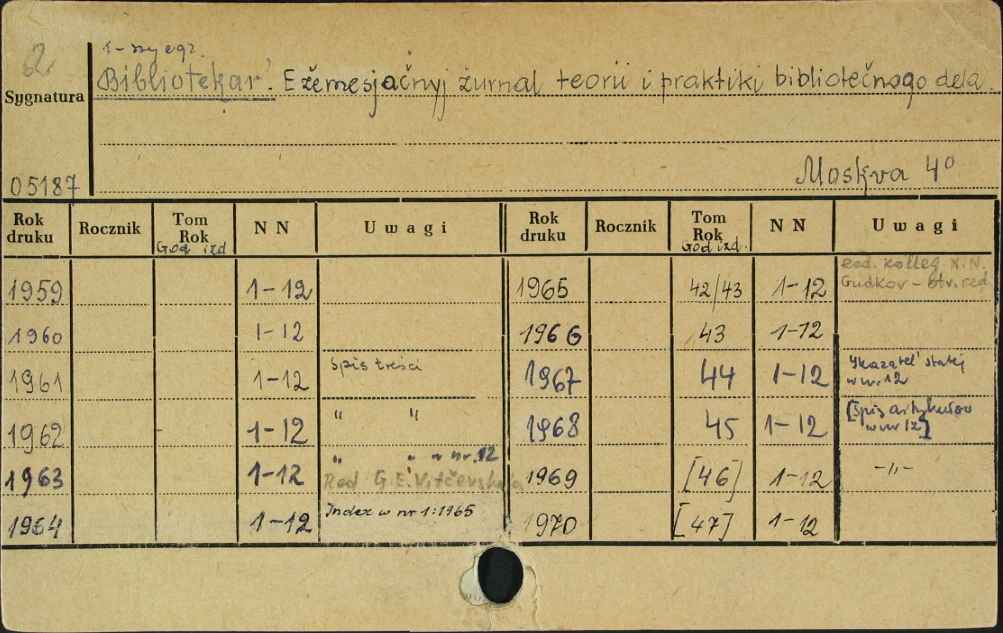 2
1-szy egz.
Bibliotekar'. Ežemesjačnyj žurnal teorii i praktiki bibliotečnogo dela.
Sygnatura
05187
Moskva 4°
Rok druku Rocznik Tom Rok God izd NN Uwagi Rok druku Rocznik Tom Rok God izd. NN Uwagi
1959 1-12 1965 42/43 1-12 red. kolleg N.N. Gudkov - otv. red.
1960 1-12 1966 43 1-12
1961 1-12 Spis treści 1967 44 1-12 Ukazatel' statej w nr. 12
1962 1-12 " " 1968 45 1-12 [Spis artykułów w nr 12]
1963 1-12 " " w nr. 12 Red G.E. Vitčevskaja 1969 [46] 1-12 -"-
1964 1-12 Index w nr 1:1965 1970 [47] 1-12